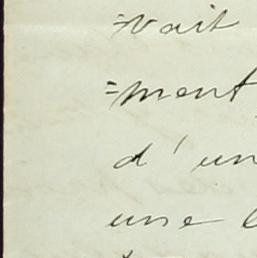 =vait
=ment
d'un
une